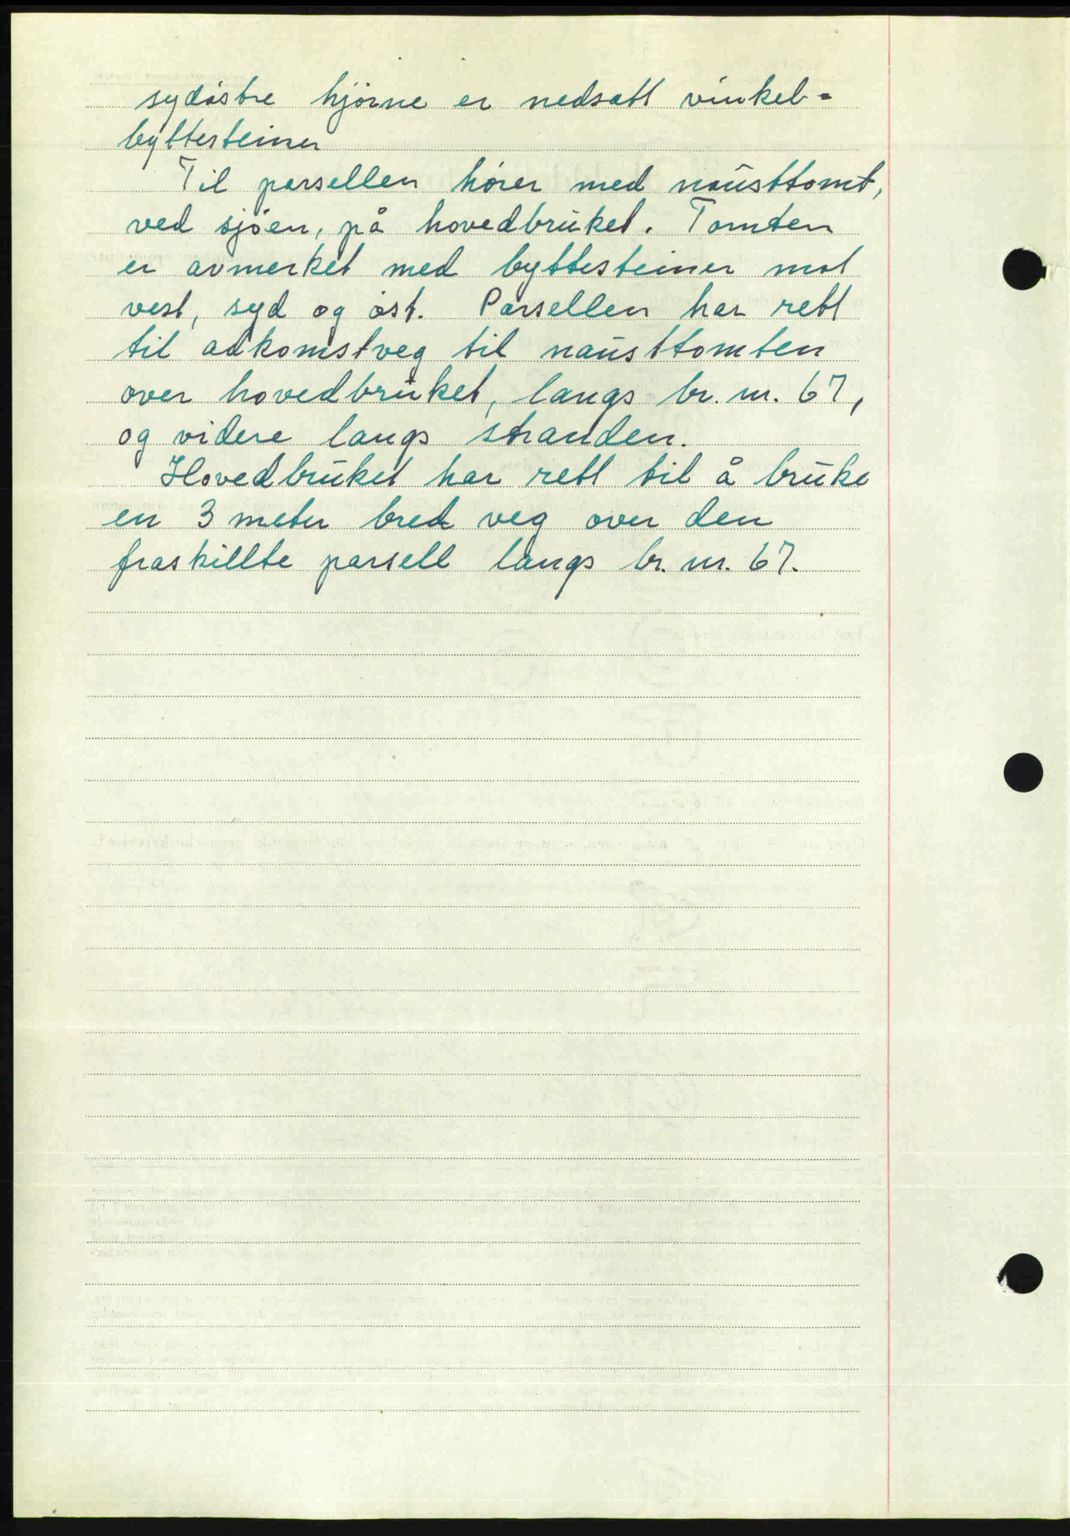 sydøstre hjørne er nedsatt vinkel-
byttesteiner
Til parsellen hører med nausttomt,
ved sjøen, på hovedbruket. Tomten
er avmerket med byttesteiner mot
vest, syd og øst. Parsellen har rett
til adkomstveg til nausttomten
over hovedbruket, langs br. nr. 67,
og videre langs stranden.
Hovedbruket har rett til å bruke
en 3 meter bred veg over den
fraskillte parsell langs br. nr. 67.